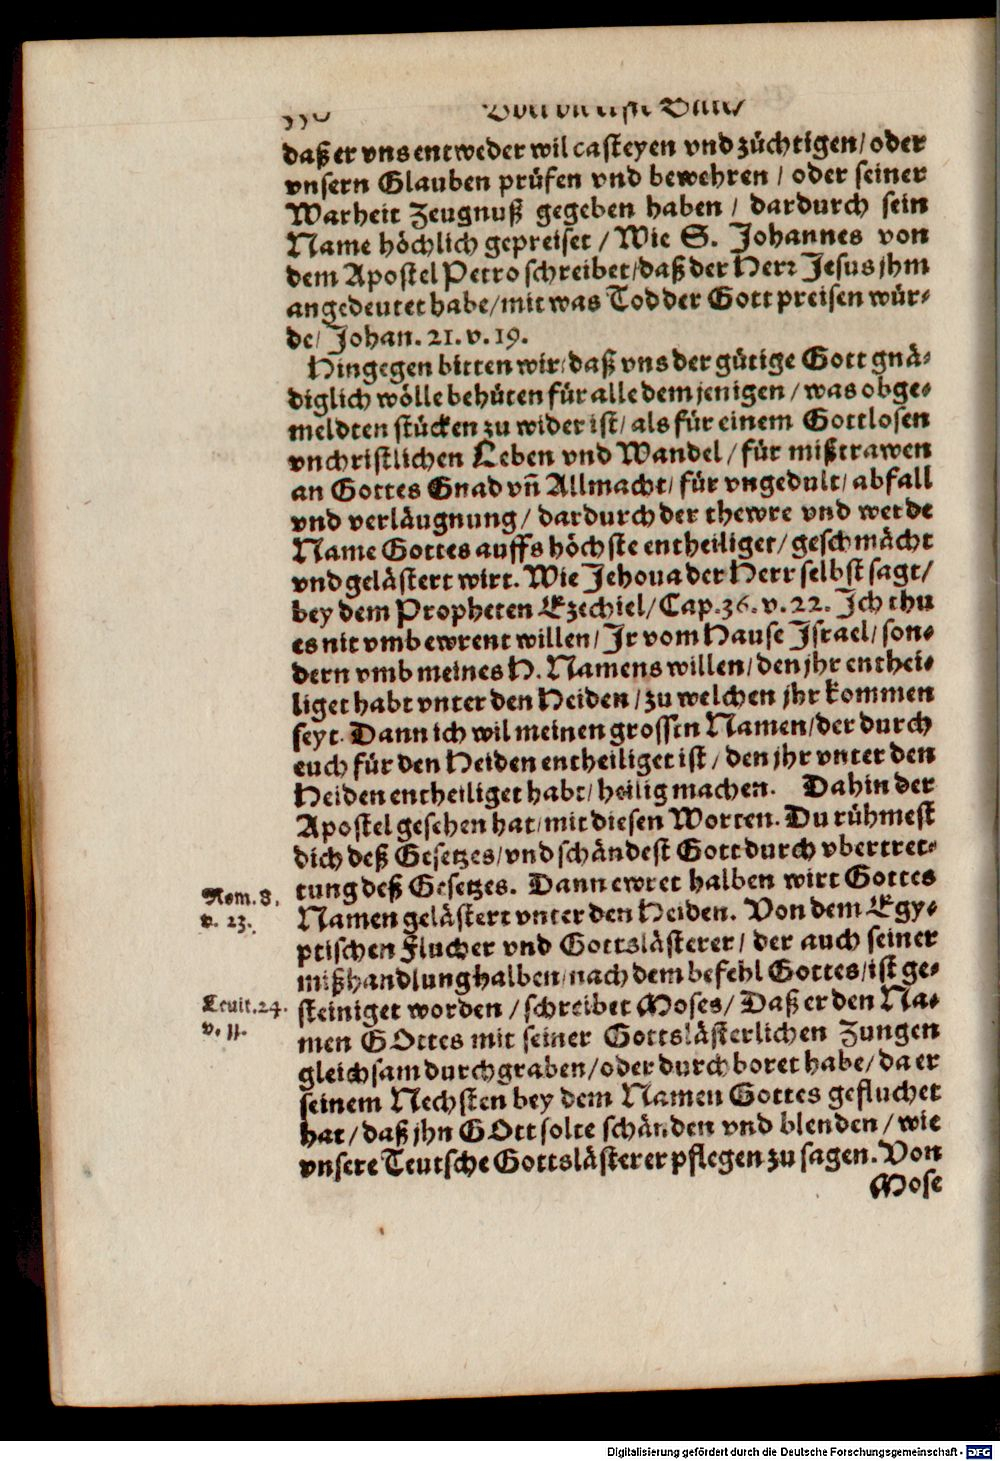 daß er vns entweder wil casteyen vnd züchtigen/ oder
vnsern Glauben prüfen vnd bewehren / oder seiner
Warheit Zeugnuß gegeben haben / dardurch sein
Name höchlich gepreiset / Wie S. Johannes von
dem Apostel Petro schreibet/ daß der Herr Jesus jhm
angedeutet habe/ mit was Tod der Gott preisen wür-
de/ Johan. 21. v. 19.
Hingegen bitten wir/ daß vns der gütige Gott gnä-
diglich wölle behüten für alle dem jenigen / was obge-
meldten stücken zu wider ist/ als für einem Gottlosen
vnchristlichen Leben vnd Wandel / für mißtrawen
an Gottes Gnad vñ Allmacht/ für vngedult/ abfall
vnd verläugnung/ dardurch der thewre vnd werde
Name Gottes auffs höchste entheiliget/ geschmächt
vnd gelästert wirt. Wie Jehoua der Herr selbst sagt/
bey dem Propheten Ezechiel/ Cap. 36. v. 22. Ich thu
es nit vmb ewrent willen/ Jr vom Hause Israel/ son-
dern vmb meines H. Namens willen/ den jhr enthei-
liget habt vnter den Heiden / zu welchen jhr kommen
seyt. Dann ich wil meinen grossen Namen/ der durch
euch für den Heiden entheiliget ist / den jhr vnter den
Heiden entheiliget habt/ heilig machen. Dahin der
Apostel gesehen hat/ mit diesen Worten. Du rühmest
dich deß Gesetzes/ vnd schändest Gott durch vbertret-
tung deß Gesetzes. Dann ewret halben wirt Gottes
Rom. 8.
v. 23.
Namen gelästert vnter den Heiden. Von dem Egy-
ptischen Flucher vnd Gottslästerer/ der auch seiner
mißhandlung halben/ nach dem befehl Gottes/ ist ge-
Leuit. 24.
v. 11.
steiniget worden / schreibet Moses/ Daß er den Na-
men GOttes mit seiner Gottslästerlichen Zungen
gleichsam durchgraben/ oder durchboret habe/ da er
seinem Nechsten bey dem Namen Gottes gefluchet
hat / daß jhn GOtt solte schänden vnd blenden / wie
vnsere Teutsche Gottslästerer pflegen zu sagen. Von
Mose
Digitalisierung gefördert durch die Deutsche Forschungsgemeinschaft - DFG